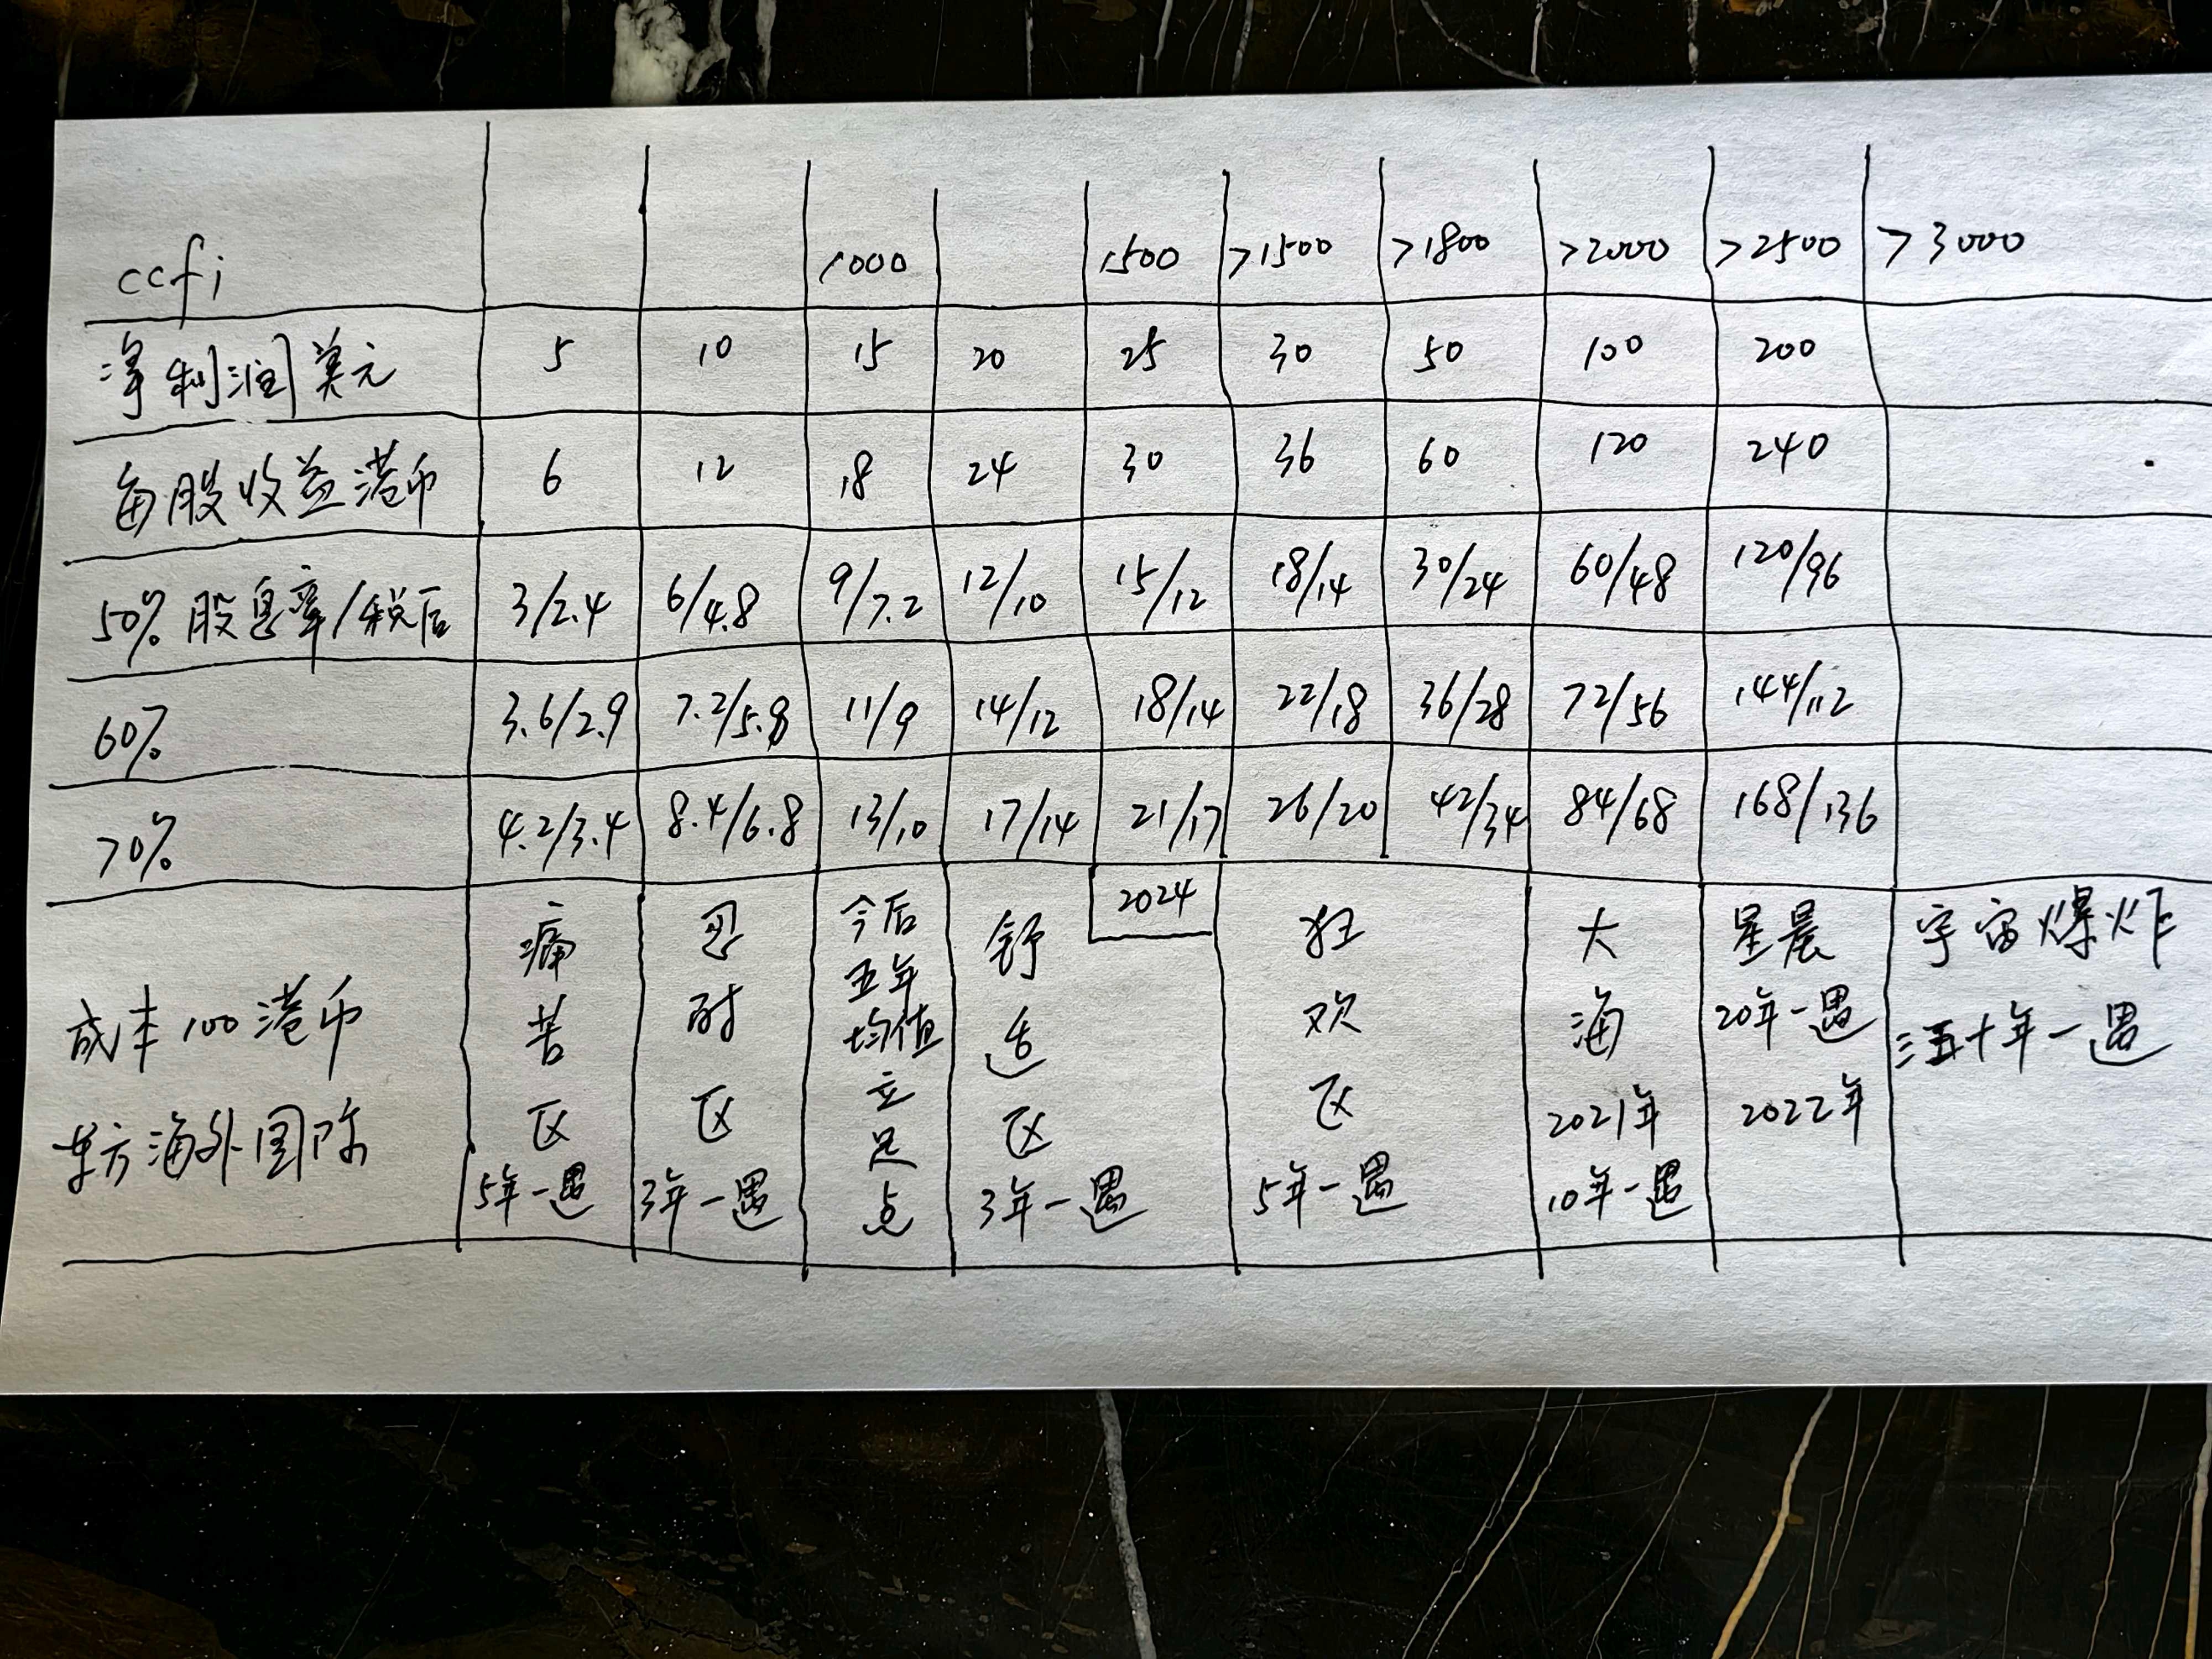 ccfi 1000 1500 >1500 >1800 >2000 >2500 >3000
净利润美元 5 10 15 20 25 30 50 100 200
每股收益港币 6 12 18 24 30 36 60 120 240
50% 股息率/税后 3/2.4 6/4.8 9/7.2 12/10 15/12 18/14 30/24 60/48 120/96
60% 3.6/2.9 7.2/5.8 11/9 14/12 18/14 22/18 36/28 72/56 144/112
70% 4.2/3.4 8.4/6.8 13/10 17/14 21/17 26/20 42/34 84/68 168/136
成本100港币
东方海外国际
痛苦区
5年一遇
忍耐区
3年一遇
今后
五年
均值
立足点
舒适区
3年一遇
2024
狂欢区
5年一遇
大海
2021年
10年一遇
星晨
20年一遇
2022年
宇宙爆炸
三五十年一遇